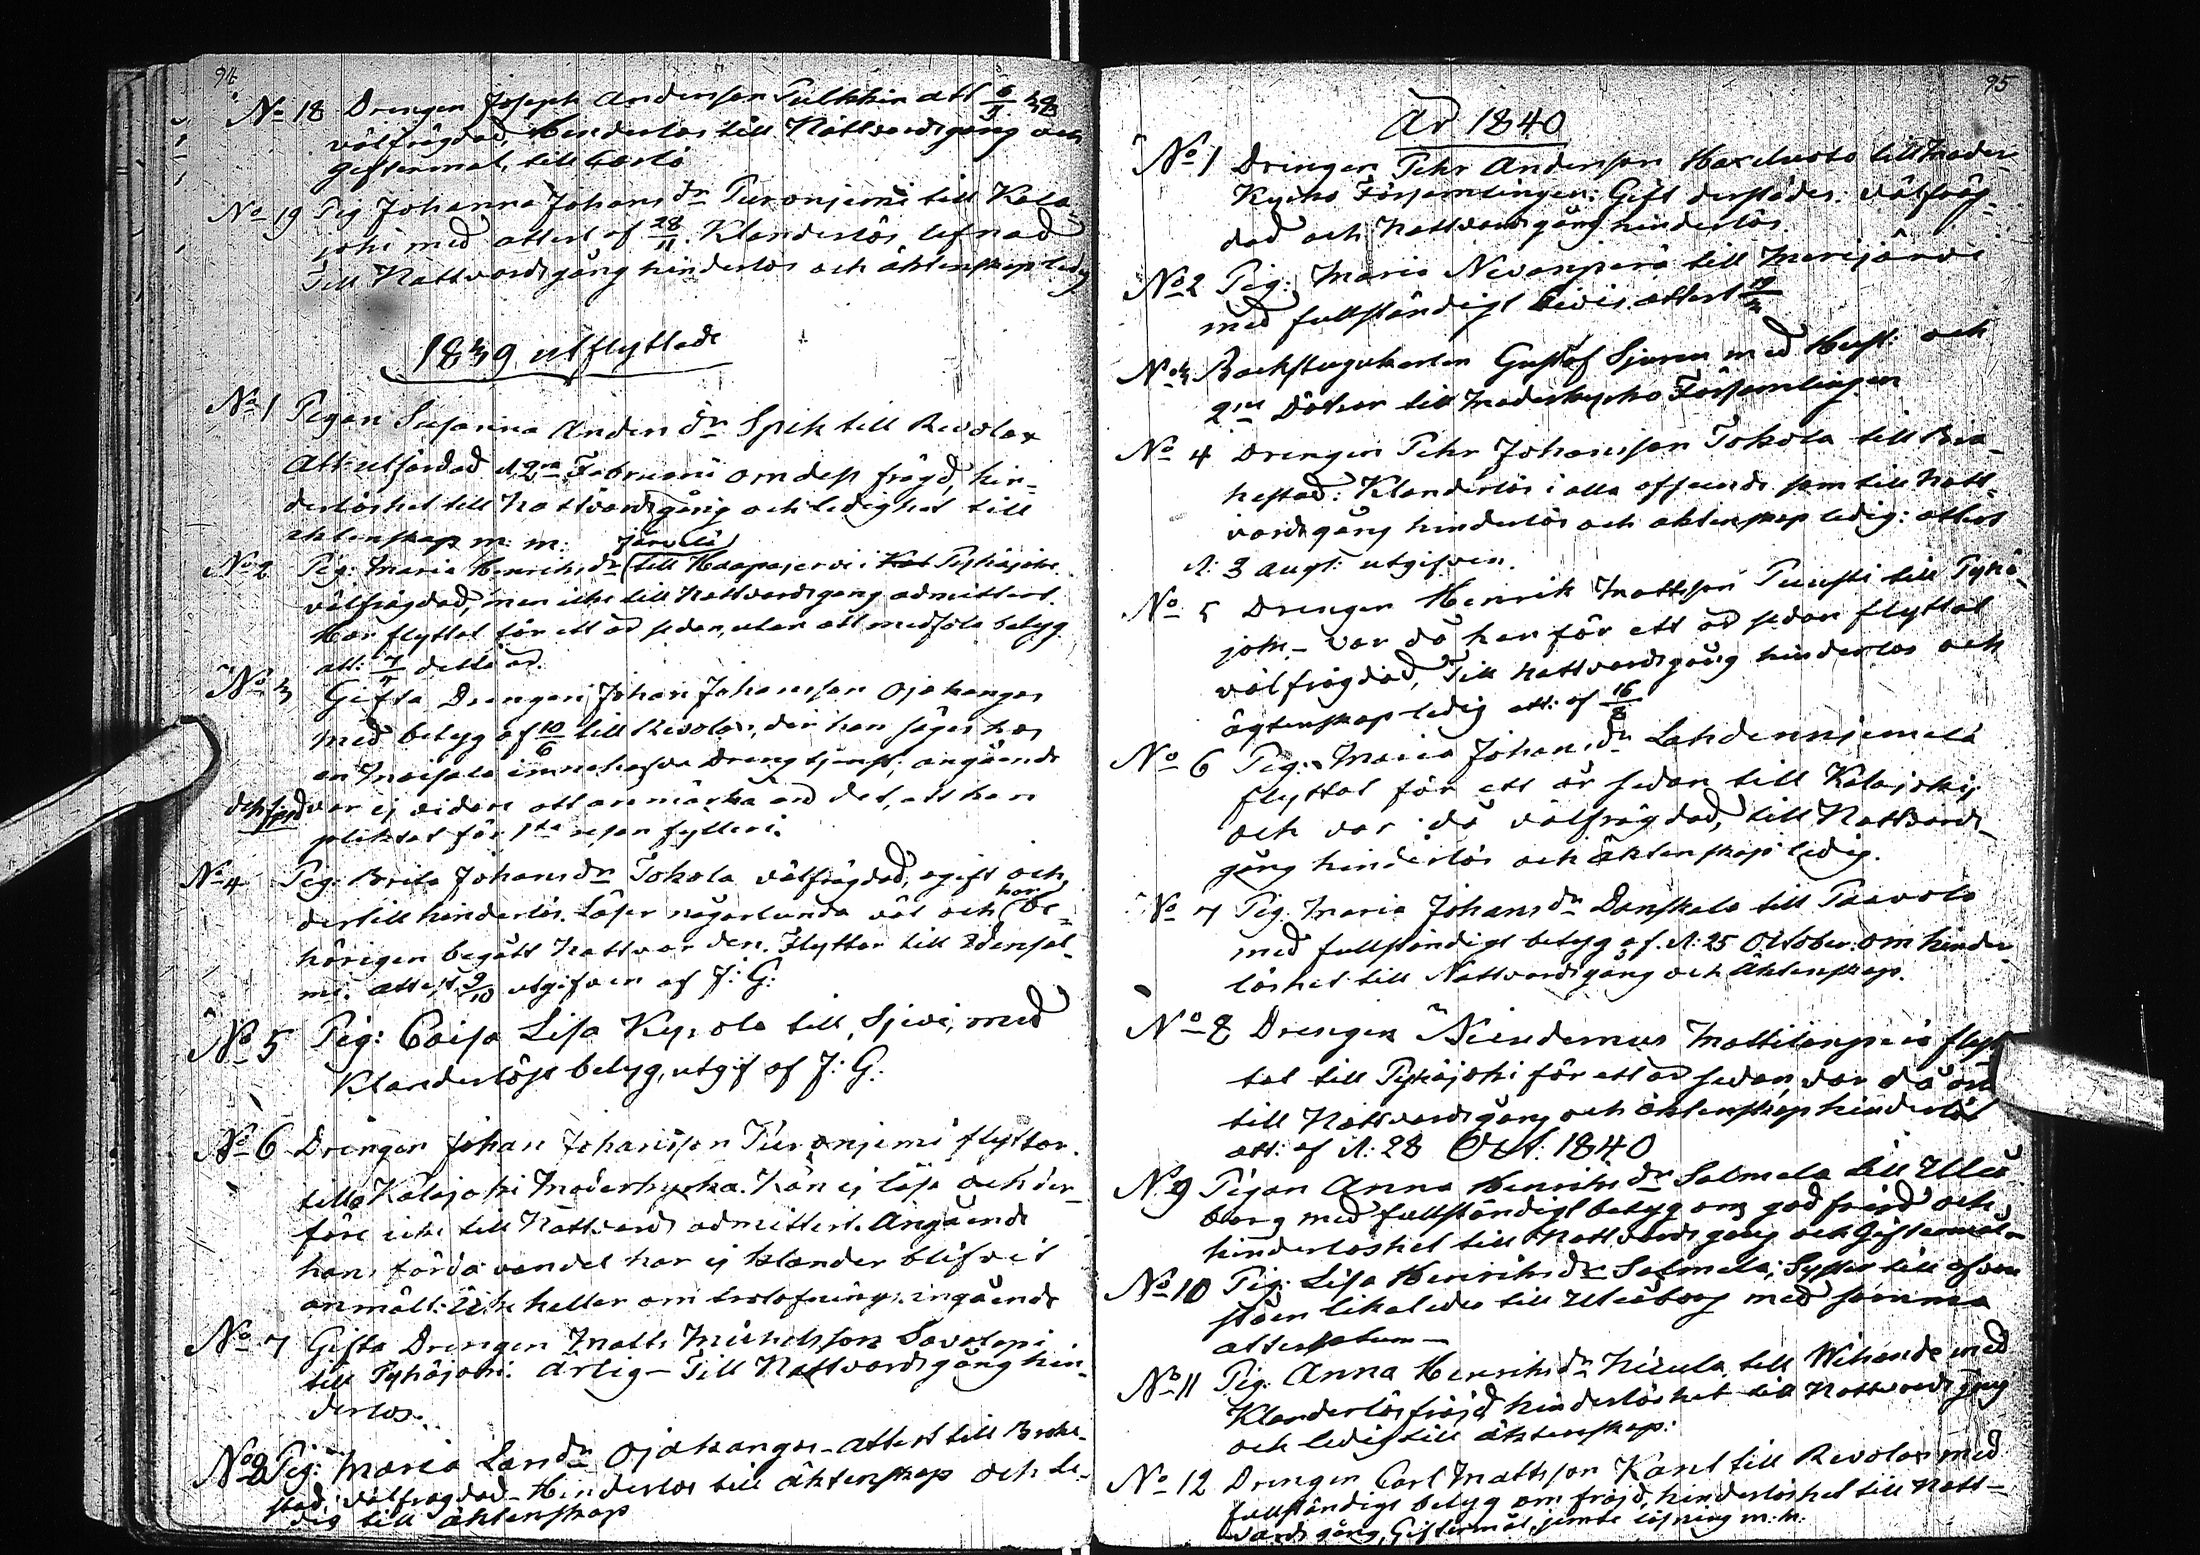 94
No 18 Drengen Joseph Andersson Pulkkin att 6/9 38
välfrägdad, hinderlös till Nattvardsgång och
giftermål, till Carlö
No 19 Pig Johanna Johansdr Turonjemi till Kala-
joki med attest af 28/11. Klanderlös lefnad
Till Nattvardsgång hinderlös och äktenskap ledig
1839 utflyttade
No 1 Pigan Susanna Andersdr Spik till Revolax
Att: utfärdad d. 2ra Februarii om dess frägd, hin-
derlöshet till Nattvardsgång och ledighet till
äktenskap m: m:
No 2 Pig: Maria Henriksdr till Haapajervi i Pyhäjoki
välfrägdad, men icke till Nattvardsgång admitterd.
Har flyttat för ett år sedan, utan att medföra betyg
att: detta år.
No 3 Gifta Drengen Johan Johansson Ojakangas
med betyg af 10/6 till Revolax, der han säges hos
en Maisala innehafva Drengtjenst; angående
dess frejd var ej vidare att anmärka än det, att han
pliktat för 1sta resan fylleri.
No 4 Pig: Brita Johansdr Tokola välfrägdad, ogift och
dertill hinderlös. Läser någorlunda väl och har be-
hörigen begått Nattvarden. Flyttar till Idensal-
mi. attest 9/10 utgifven af J: G:
No 5 Pig: Caisa Lisa Kyrola till Sievi, med
Klanderlöst betyg, utgif af J: G:
No 6 Drengen Johan Johansson Turonjemi flyttar
till Kalajoki Moderkyrka. Kan ej läsa och der-
före icke till Nattvard admitterd. Angående
hans förda vandel har ej klander blifvit
anmält: Icke heller om trolofnings ingående
No 7 Gifta Drengen Matts Michelsson Savolapi
till Pyhäjoki. Arlig - Till Nattvardsgång hin-
derlös.
No 8 Pig: Maria Larsdr Ojakangas - attest till Brahe-
stad, välfrägdad - Hinderlös till äktenskap och le-
dig till äktenskap
95
År 1840
No 1 Drengen Pehr Andersson till Moder-
Kyrko Församlingen: Gift derstädes: välfräg-
dad och Nattvardsgång hinderlös.
No 2 Pig: Maria Nevanperä till Merijärvi
med fullständigt bevis. attest
No 3 Backstugukarlen Gustaf Sjuren med Hust: och
2ne Döttrar till Moderkyrko Församlingen
No 4 Drengen Pehr Johansson Tokola till Bra-
hestad: Klanderlös i alla afseende som till Natt-
vardsgång hinderlös och äktenskap ledig: attest
d: 3 Augt: utgifven.
No 5 Drengen Henrik Mattsson Punsti till Pyhä-
joki - var då han för ett år sedan flyttat
välfrägdad, Till Nattvardsgång hinderlös och
ägtenskap ledig att: af 16/8
No 6 Pig: Maria Johansdr Lahdennjemelä
flyttat för ett år sedan till Kalajoki
och var då välfrägdad, till Nattvards-
gång hinderlös och äktenskap ledig.
No 7 Pig Maria Johansdr Danskala till Paavola
med fullständigt betyg af d: 25 October om hinder-
löshet till Nattvardsgång och äktenskap.
No 8 Drengen Nicudemus Mattilanperä flyt
tat till Pyhäjoki för ett år sedan, var då
till Nattvardsgång och äktenskap hinderlös
att: af d: 28 Oct: 1840
No 9 Pigan Anna Henriksdr Salmela till Uleå
borg med fullständigt betyg om god frejd och
hinderlöshet till Nattvardsgång och Giftermål
No 10 Pig: Lisa Henriksdr Salmela; Syster till ofvan
stäen likaledes till Uleåborg med samma
attestatum -
No 11 Pig: Anna Henriksdr Nicula till Wihanda med
Klanderlös frejd hinderlöshet till Nattvardsgång
och ledig till äktenskap:
No 12 Drengen Carl Mattsson Karel till Revolax med
fullständigt betyg om frejd, hinderlöshet till Natt-
vardsgång, Giftermål, jemte läsning m: m: